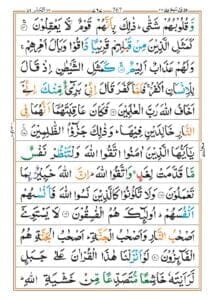 وَّقُلُوۡبُهُمۡ شَتّٰى‌ؕ ذٰلِكَ بِاَنَّهُمۡ قَوۡمٌ لَّا يَعۡقِلُوۡنَ‌ۚ
كَمَثَلِ الَّذِيۡنَ مِنۡ قَبۡلِهِمۡ قَرِيۡبًا‌ ذَاقُوۡا وَبَالَ اَمۡرِهِمۡ‌ۚ
وَلَهُمۡ عَذَابٌ اَلِيۡمٌ‌ۚ كَمَثَلِ الشَّيۡطٰنِ اِذۡ قَالَ
لِلۡاِنۡسَانِ اكۡفُرۡ‌ۚ فَلَمَّا كَفَرَ قَالَ اِنِّىۡ بَرِىۡٓءٌ مِّنۡكَ اِنِّىۡۤ
اَخَافُ اللّٰهَ رَبَّ الۡعٰلَمِيۡنَ فَكَانَ عَاقِبَتَهُمَاۤ اَنَّهُمَا فِى
النَّارِ خَالِدَيۡنِ فِيۡهَا‌ ؕ وَذٰلِكَ جَزٰٓؤُا الظّٰلِمِيۡنَ
يٰۤاَيُّهَا الَّذِيۡنَ اٰمَنُوا اتَّقُوا اللّٰهَ وَلۡتَنۡظُرۡ نَفۡسٌ
مَّا قَدَّمَتۡ لِغَدٍ‌ ۚ وَاتَّقُوا اللّٰهَ‌ؕ اِنَّ اللّٰهَ خَبِيۡرٌۢ بِمَا
تَعۡمَلُوۡنَ وَلَا تَكُوۡنُوۡا كَالَّذِيۡنَ نَسُوا اللّٰهَ فَاَنۡسٰٮهُمۡ
اَنۡفُسَهُمۡ‌ؕ اُولٰٓٮِٕكَ هُمُ الۡفٰسِقُوۡنَ لَا يَسۡتَوِىۡۤ
اَصۡحٰبُ النَّارِ وَاَصۡحٰبُ الۡجَـنَّةِ‌ؕ اَصۡحٰبُ الۡجَـنَّةِ هُمُ
الۡفَآٮِٕزُوۡنَ لَوۡ اَنۡزَلۡنَا هٰذَا الۡقُرۡاٰنَ عَلٰى جَبَلٍ
لَّرَاَيۡتَهٗ خَاشِعًا مُّتَصَدِّعًا مِّنۡ خَشۡيَةِ اللّٰهِ‌ؕ